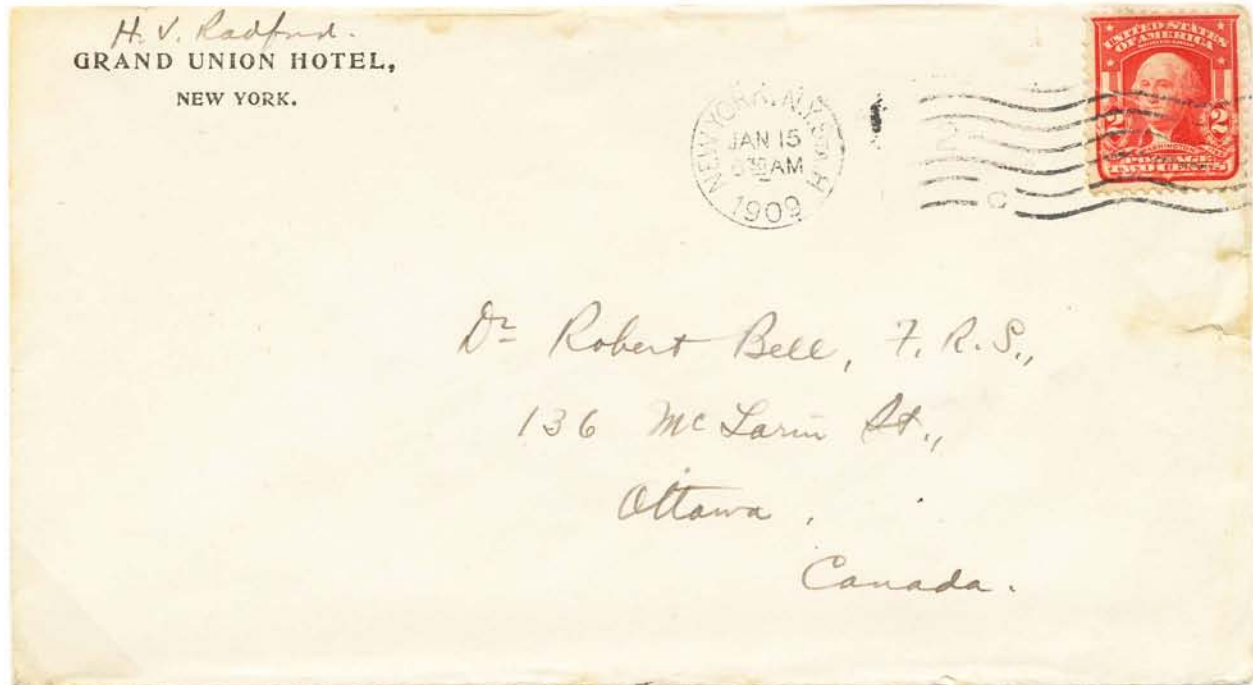 H. V. Radford.
GRAND UNION HOTEL,
NEW YORK.
NEW YORK, N.Y. STA. H
JAN 15
630 AM
1909
UNITED STATES
OF AMERICA
2 2
WASHINGTON
POSTAGE
TWO CENTS
Dr Robert Bell, F. R. S.,
136 McLarin St.,
Ottawa,
Canada.